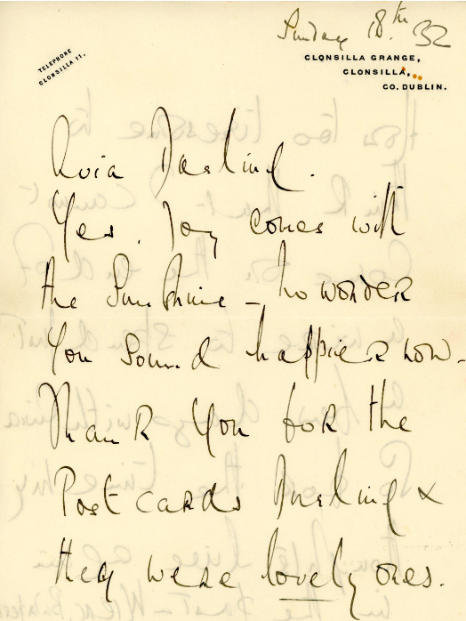 Sunday 18.th 32
TELEPHONE
CLONSILLA 11.
CLONSILLA GRANGE,
CLONSILLA,
CO. DUBLIN.
Darling.
Yes, Joy comes with
the Sunshine - no wonder
you sound happier now -
Thank you for the
Post cards Darling &
they were lovely ones.